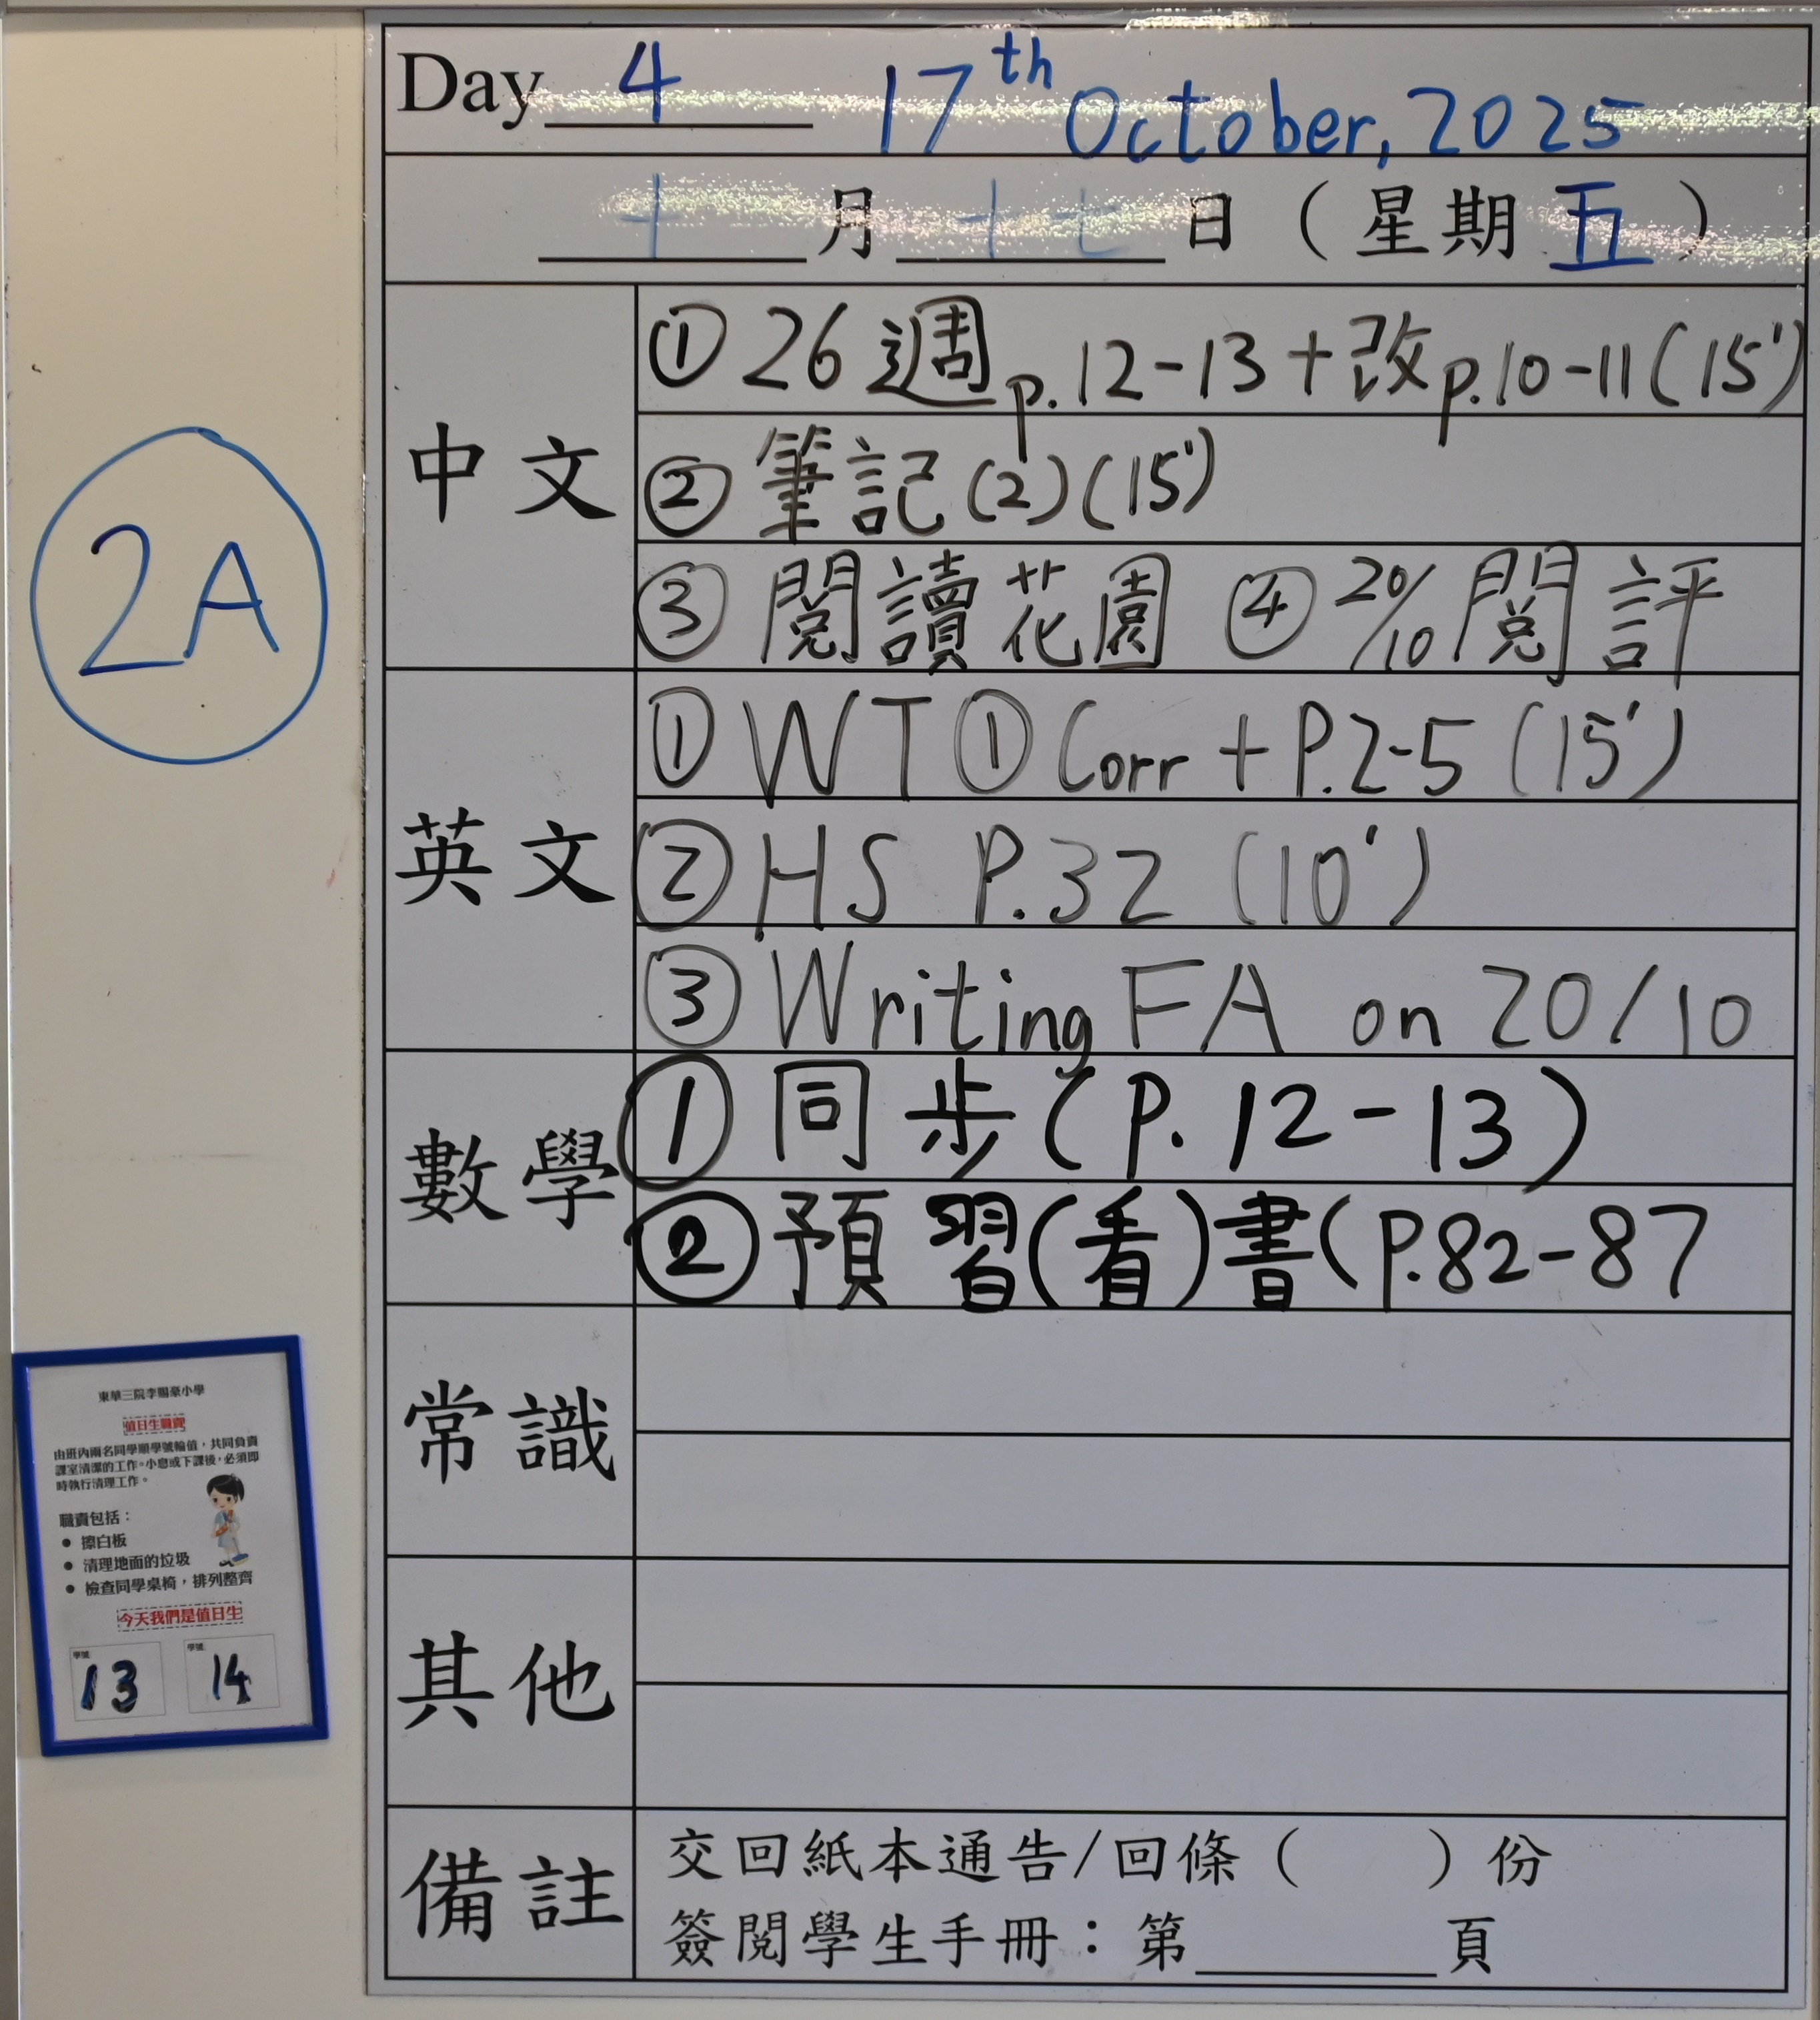 Day 4 17th October, 2025
十月十七日（星期五）
中文
① 26週 p.12-13+改p.10-11(15')
② 筆記(2)(15')
③ 閱讀花園 ④ 20/10 閱評
2A
英文
① WT ① Corr + P.2-5 (15')
② HS P.32 (10')
③ Writing FA on 20/10
數學
① 同步(P.12-13)
② 預習(看)書(P.82-87
常識
其他
備註
交回紙本通告/回條（ ）份
簽閱學生手冊：第____頁
東華三院李賜豪小學
值日生職責
由班內兩名同學順學號輪值，共同負責
課室清潔的工作。小息或下課後，必須即
時執行清理工作。
職責包括：
● 擦白板
● 清理地面的垃圾
● 檢查同學桌椅，排列整齊
今天我們是值日生
學號 學號
13 14